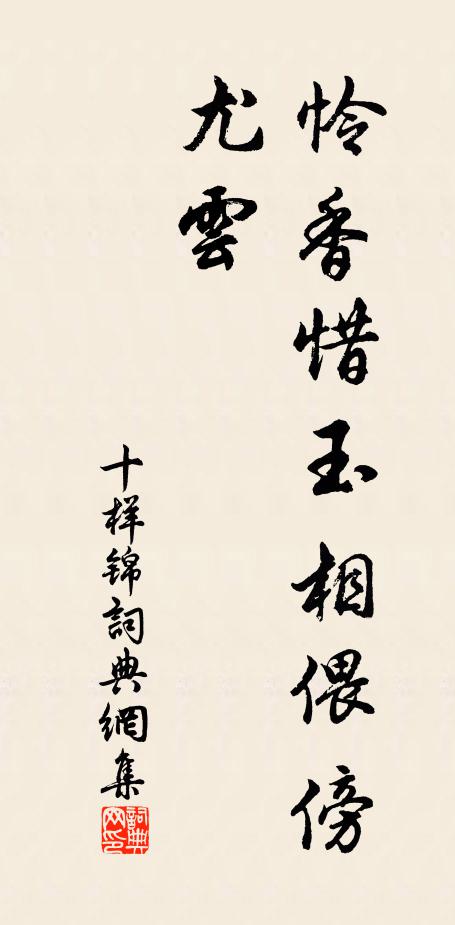 怜香惜玉相偎傍
尤雲
十样锦詞典網集
詞典网印